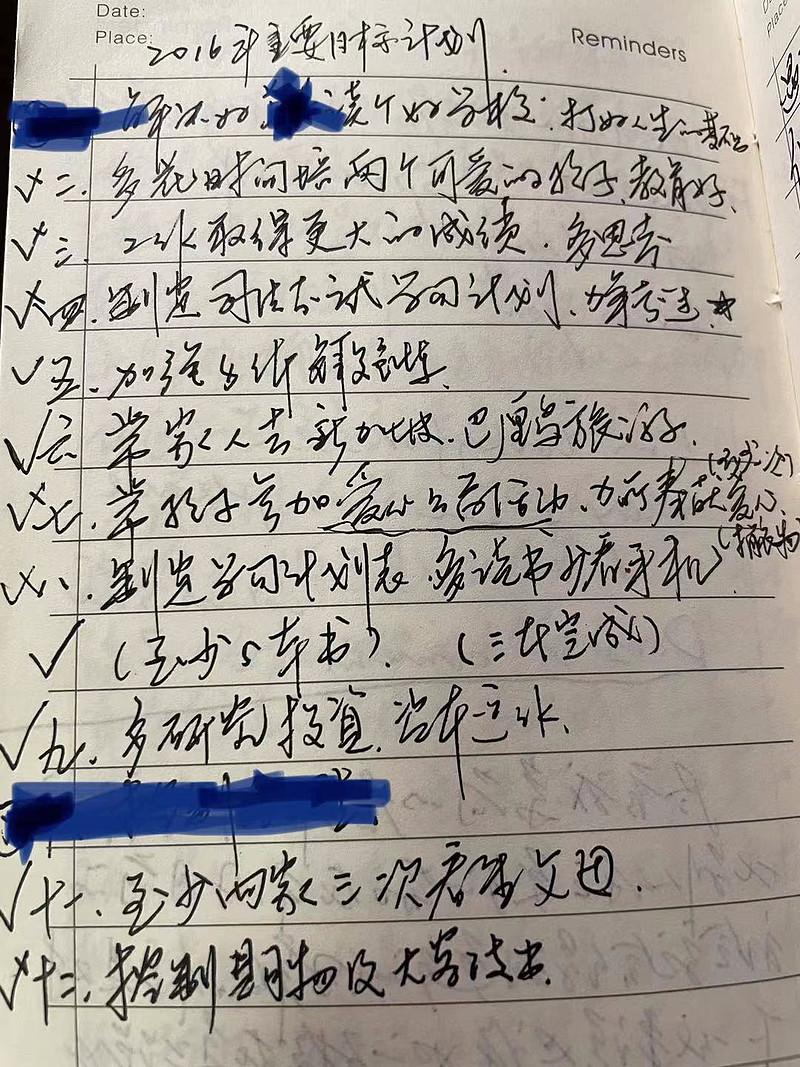 Date:
Place:
Reminders
2016年重要目标计划.
解决好 读个好学校. 打好人生的基石
√二. 多花时间培两个可爱的孩子, 教育好.
√三. 工作取得更大的成绩. 多思考
√四. 制定司法考试学习计划, 力争考过. ☆
√五. 加强身体 锻炼.
√六. 带家人去新加坡. 巴厘岛旅游.
(至少一次)
√七. 带孩子参加爱心公益活动. 力所 奉献爱心.
(捐衣物)
√八. 制定学习计划表. 多读书少看手机
√ (至少5本书). (三本完成)
√九. 多研究投资.
√十一. 至少回家三次看望父母.
√十二. 控制 购物及大宗支出.